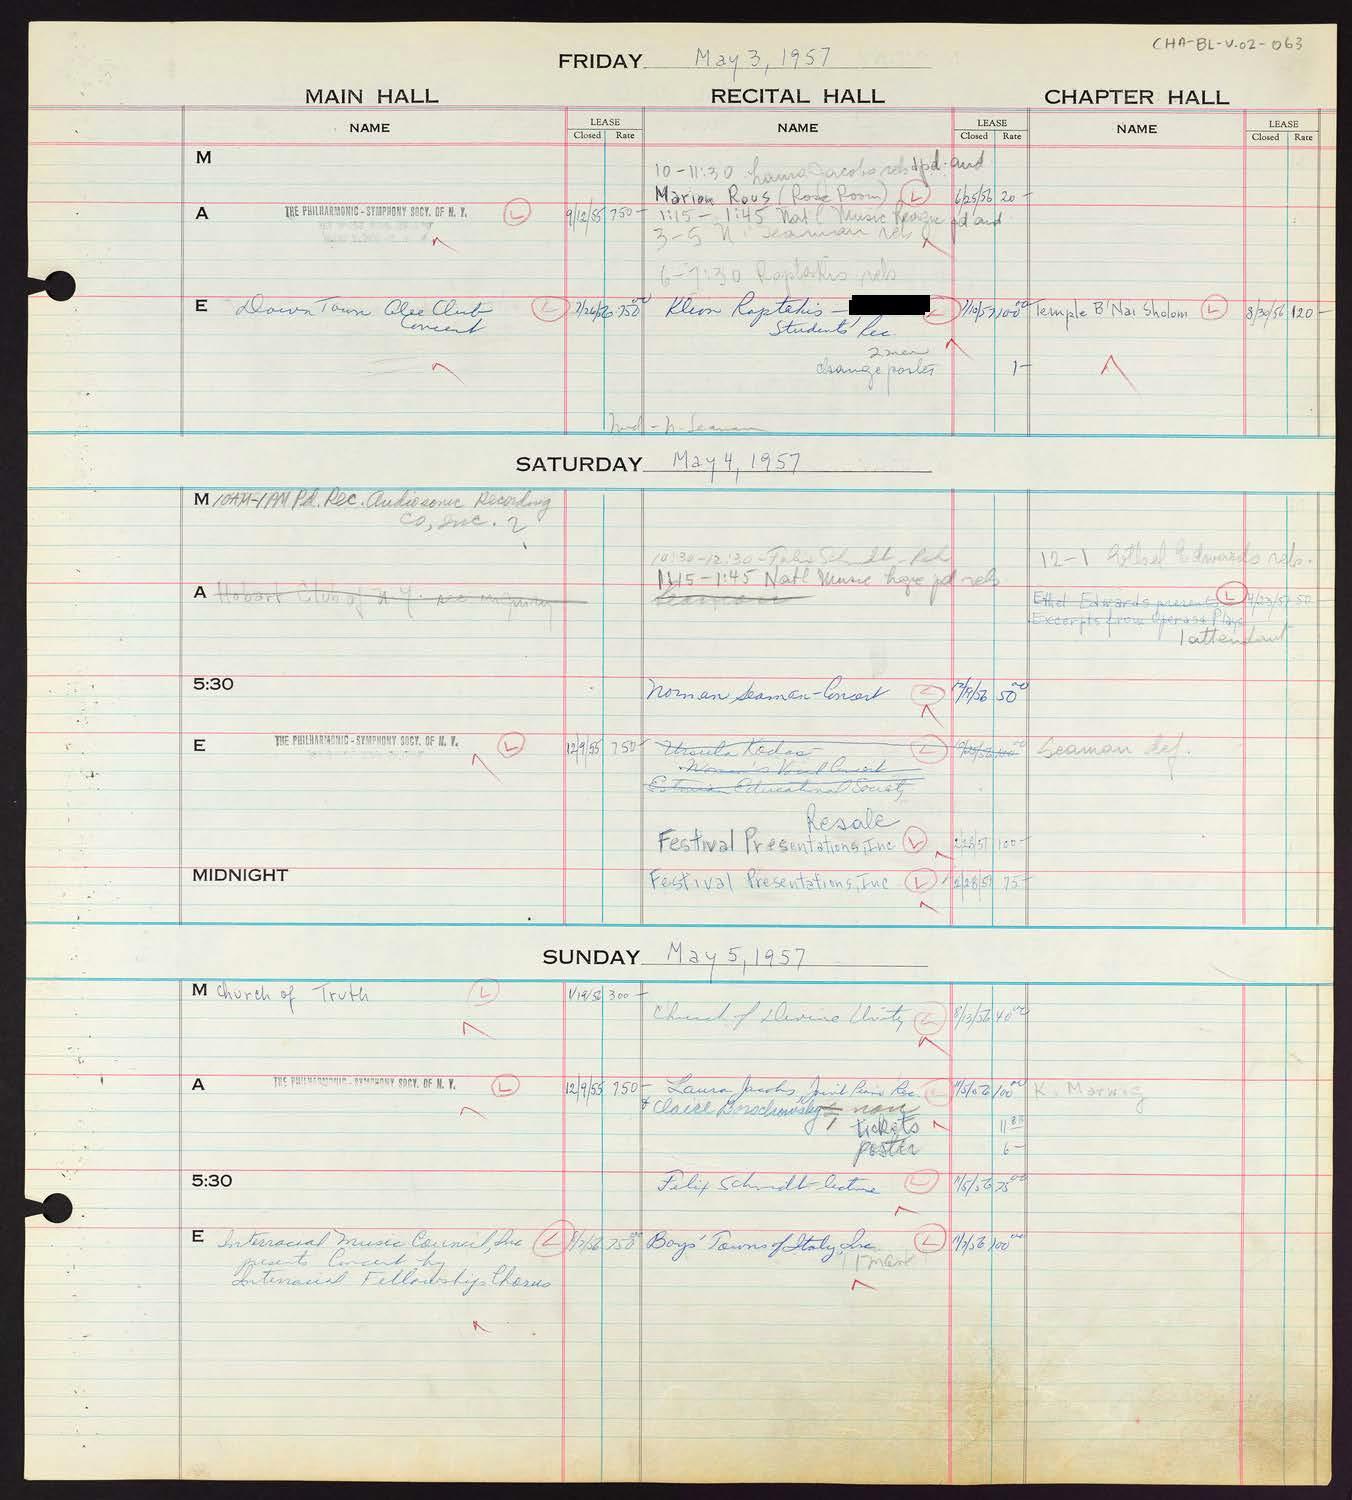 CHA-BL-V.02-063
FRIDAY May 3, 1957
MAIN HALL RECITAL HALL CHAPTER HALL
NAME LEASE Closed Rate NAME LEASE Closed Rate NAME LEASE Closed Rate
M
10-11:30 Laura Jacobs rehs pd. and
Marion Rous (Rose Room) L 6/25/56 20-
A THE PHILHARMONIC-SYMPHONY SOCY. OF N. Y. L 9/12/55 750-
1:15-1:45 Nat'l Music League pd and
3-5 N. Seaman rehs
6-7:30 Raptakis rehs
E Down Town Glee Club L 7/26/56 750 00
Concert
Kleon Raptakis - L 100 00
Students' Rec
2 men
change poster 1-
Temple B'Nai Sholom L 8/30/56 120-
Mid - N. Seaman
SATURDAY May 4, 1957
M 10AM-1PM Pd. Rec. Audiosonic Recording
Co, Inc. 2
10:30-12:30-Felix Schmidt-
1:15-1:45 Nat'l Music League pd rehs
Seaman
12-1 Ethel Edwards rehs.
A Hobart Club of N.Y.
Ethel Edwards presents L 4/23/57 50-
Excerpts from Operas & Plays
1 attendant
5:30 Norman Seaman-Concert L 50 00
E THE PHILHARMONIC-SYMPHONY SOCY. OF N. Y. L 12/9/55 750-
Ursula Kodas L
Women's Vocal Concert
Estonian Educational Society
Seaman def.
Resale
Festival Presentations, Inc L 2/28/57 100-
MIDNIGHT Festival Presentations, Inc L 2/28/57 75-
SUNDAY May 5, 1957
M Church of Truth L 1/19/56 300-
Church of Divine Unity L 8/13/56 40 00
A THE PHILHARMONIC-SYMPHONY SOCY. OF N. Y. L 12/9/55 750-
Laura Jacobs, Joint Piano Rec. L 100 00
& Claire
tickets 11
poster 6-
K. Marwig
5:30 Felix Schmidt lecture L 75 00
E Interracial Music Council, Inc L 750 00
presents Concert by
Interracial Fellowship Chorus
Boys' Towns of Italy, Inc. L 100 00
1 man